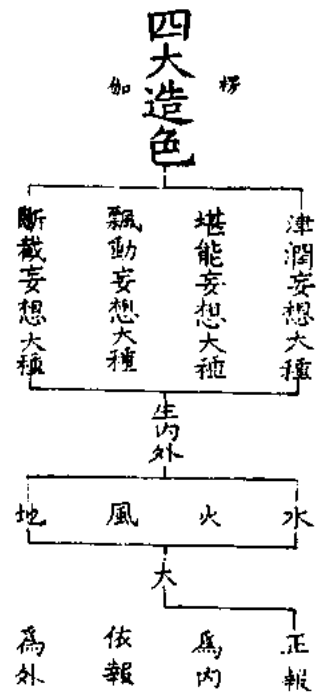 四大造色
楞
伽
津潤妄想大種
堪能妄想大種
飄動妄想大種
斷截妄想大種
生內外
水
火
風
地
大
正報
為內
依報
為外